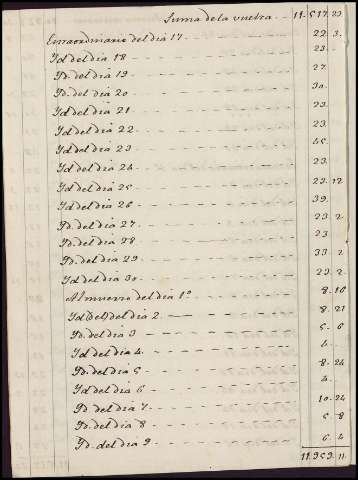 Suma de la vuelta - - 11.517. 23
Extraordinario del dia 17 - - - - - - 22. 3.
Id del dia 18 - - - - - - - - - 23. -
Yd. del dia 19 - - - - - - - - - 27.
Yd. del dia 20 - - - - - - - - - 30.
Id del dia 21 - - - - - - - - - 23.
Id del dia 22 - - - - - - - - - 23.
Id del dia 23 - - - - - - - - - 45.
Id del dia 24 - - - - - - - - - 23.
Id del dia 25 - - - - - - - - - 23. 12
Id del dia 26 - - - - - - - - - 39.
Yd. del dia 27 - - - - - - - - - 23. 2.
Yd. del dia 28 - - - - - - - - - 23
Yd. del dia 29 - - - - - - - - - 33. 2.
Id del dia 30 - - - - - - - - - 23. 2
Almuerzo del dia 1º - - - - - - - 8. 16
Id del dia 2 - - - - - - - - - 8. 21
Yd. del dia 3 - - - - - - - - - 5. 6
Id del dia 4 - - - - - - - - - 4. -
Yd. del dia 5 - - - - - - - - - 8. 24
Id del dia 6 - - - - - - - - - 4.
Yd del dia 7 - - - - - - - - - 10. 24
Yd. del dia 8 - - - - - - - - - 5. 8
Yd. del dia 9 - - - - - - - - - 6. 4
11.953. 11.